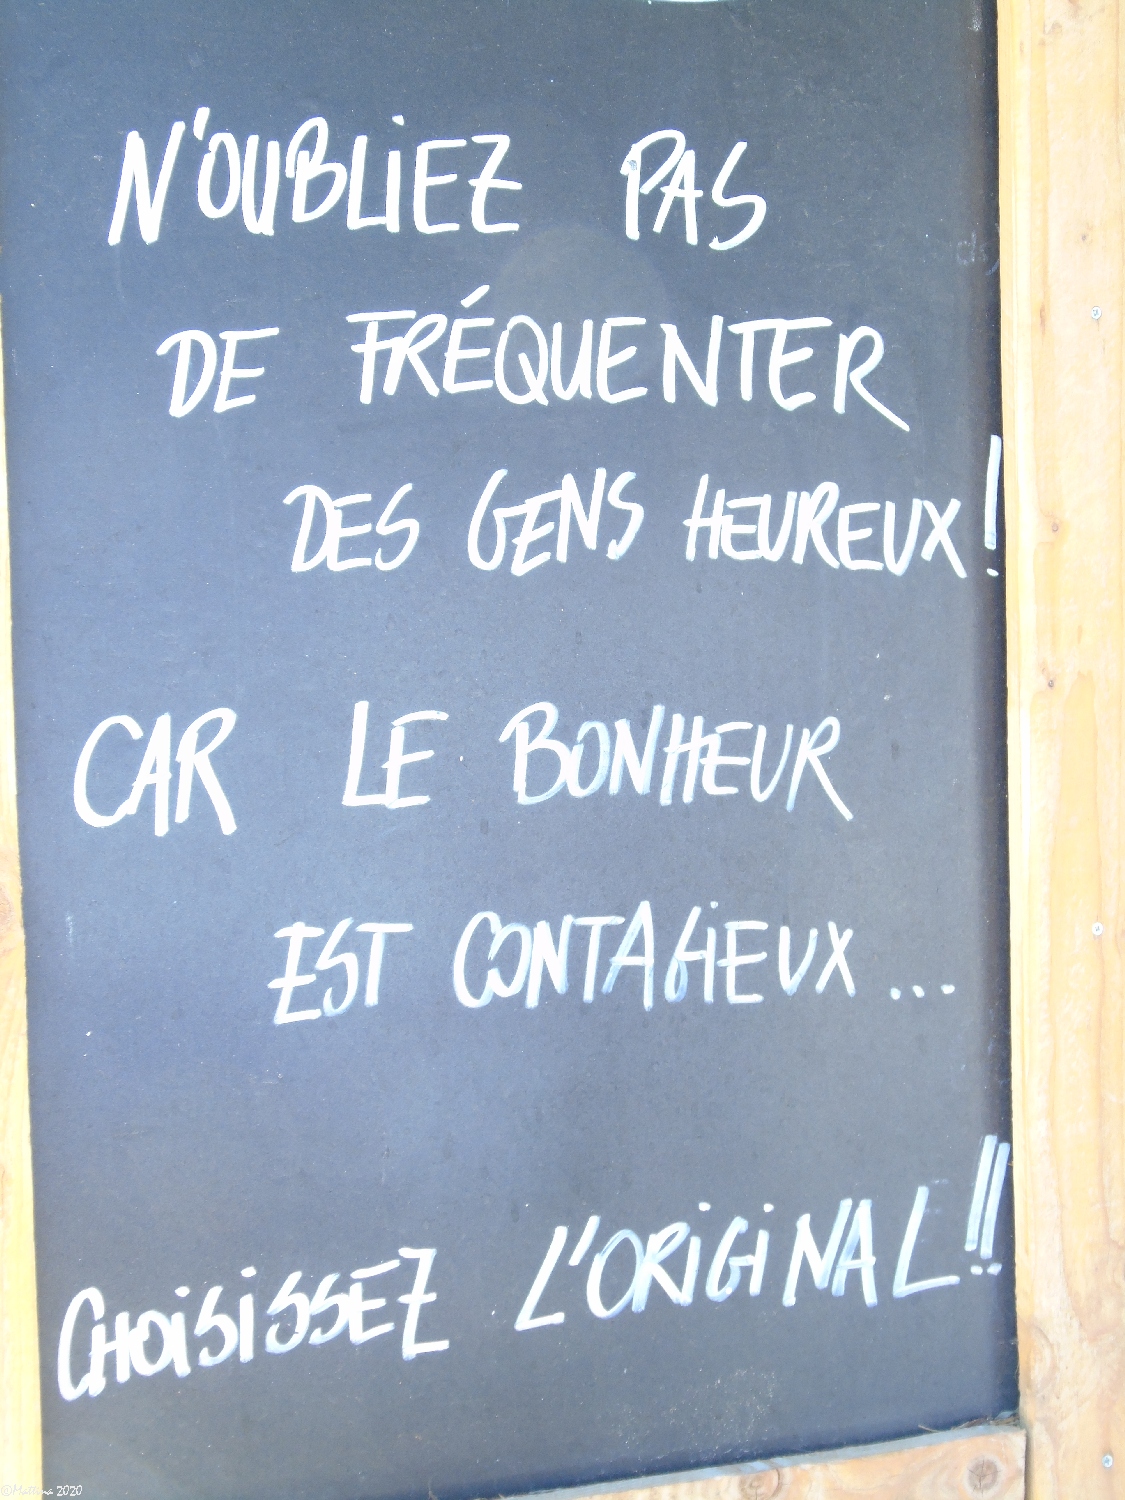 N'OUBLIEZ PAS
DE FRÉQUENTER
DES GENS HEUREUX!
CAR LE BONHEUR
EST CONTAGIEUX...
CHOISISSEZ L'ORIGINAL!!
2020